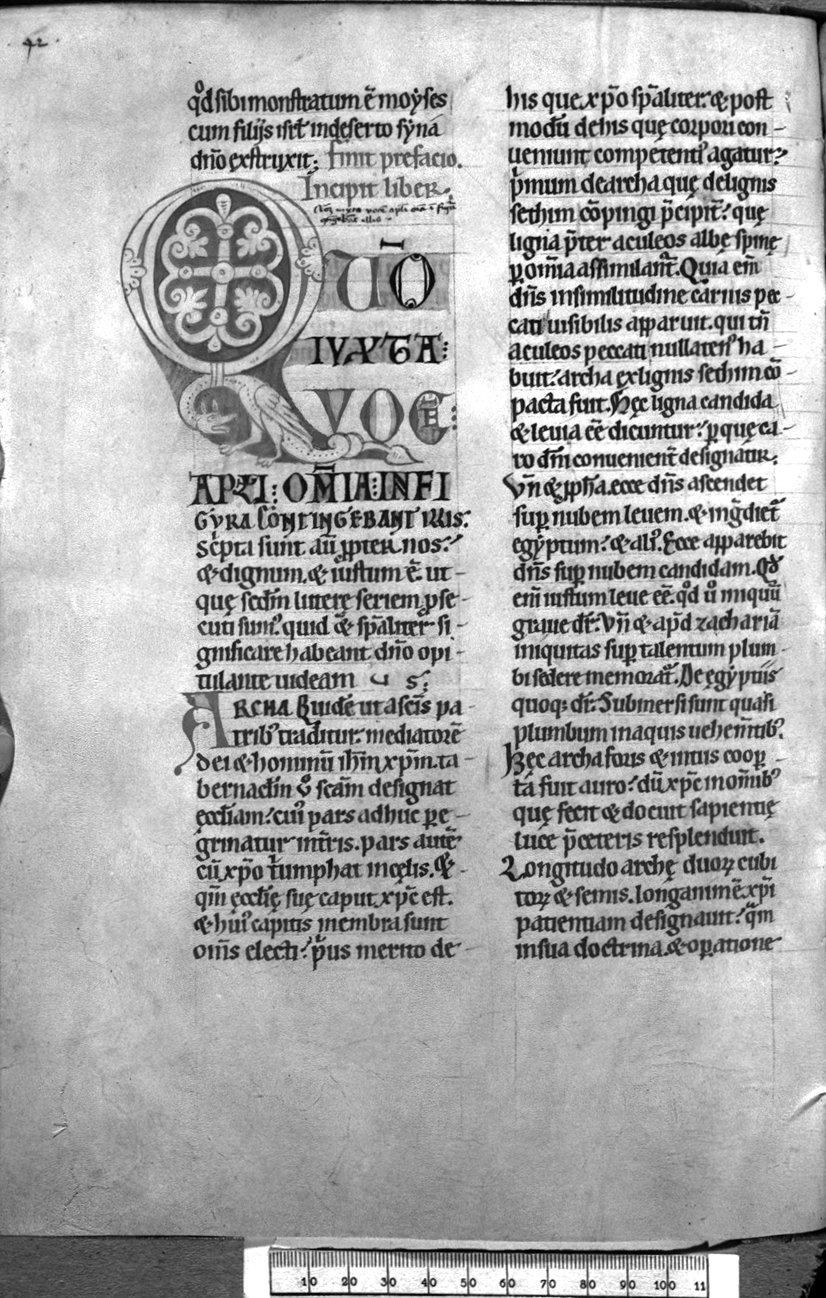 42.
qđ sibi monstratum ē moẏses
cum filijs isrł indeserto sẏna
dño exstruxit; finit prefacio.
Incipit liber.
QUŌ
IUXTA
VOCĒ
APLI: OM̄IA: INFI
GURA CONTINGEBANT ILLIS:
Scpta sunt aū ꝓpter nos:
& dignum. & iustum ē. ut
quę scdm litterę seriem ꝓse
cuti sum᷒. quid & spāliter si
gnificare habeant dño opi
tulante uideam us.
ARCHA Quidē ut a scīs pa
trib᷒ traditur. mediatorē
dei & hominū ihm xpm. ta
bernactm ů scām designat
ęcctiam. cui᷒ pars adhuc ꝑe
grinatur in tris. pars autē
cū xpo tͥumphat in cęlis. &
qm̄ ęcctię suę caput xpc est.
& hui᷒ capitis membra sunt
om̄s electi. pͥus merito de
his que xpo spāliter. & post
modū de his quę corpori con
ueniunt competent᷒ agatur.
pͥmum de archa quę de lignis
sethim cōpingi p̄cipit. quę
ligna p̄ter aculeos albę spinę
ꝑ om̄ia assimilant᷒. Quia em̄
dn̄s in similitudine carnis pec
cati uisibilis apparuit. qui tn̄
aculeos peccati nullaten᷒ ha
buit. archa ex lignis sethim cō
pacta fuit. Hęc ligna candida
& leuia ēē dicuntur. ꝑ quę ca
ro dn̄i conuenient᷒ designatur.
Vn̄ & ꝓpħa. ecce dn̄s ascendet
sup nubem leuem. & ingͣdiet᷒
egẏptum. & ali᷒. Ecce apparebit
dn̄s sup nubem candidam. Qđ
em̄ iustum leue ēē. qđ ů iniquū
graue dr̄. Vn̄ & apđ zachariā
iniquitas sup talentum plum
bi sedere memorat᷒. De ęgẏptiis
quoq; dr̄. Submersi sunt quasi
plumbum in aquis uehem̄tib᷒.
Hęc archa foris & intus cooꝑ
ta fuit auro. dū xpc in om̄ib᷒
quę fecit & docuit sapientię
luce p̄ ceteris resplenduit.
Longitudo archę duoꝝ cubi
toꝝ & semis. longanimē xpi
patientiam designauit. qͣm
in sua doctrina. & oꝑatione